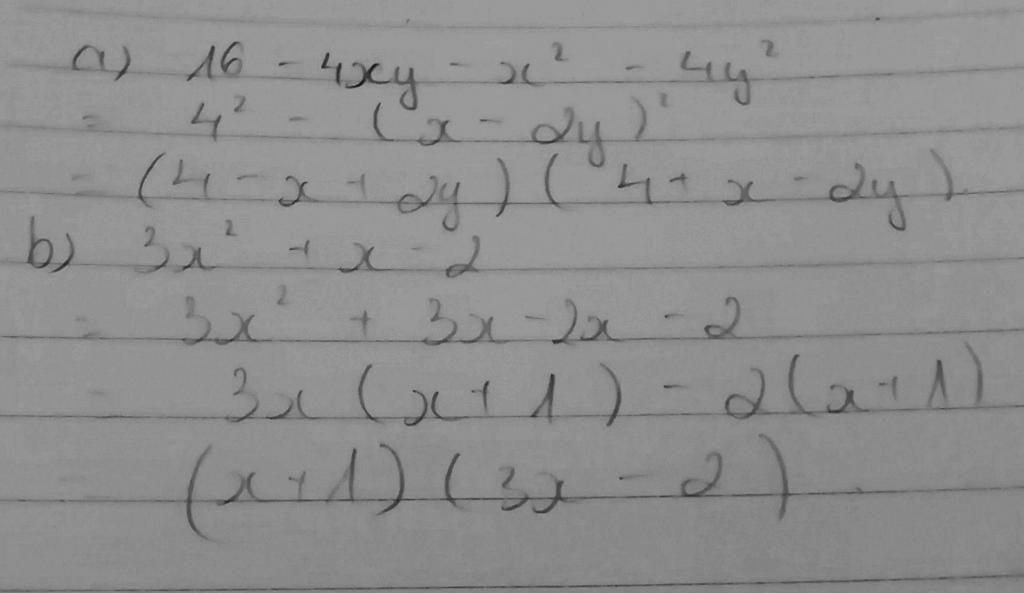 a) 16 - 4xy - x² - 4y²
= 4² - (x - 2y)²
= (4 - x + 2y) (4 + x - 2y)
b) 3x² + x - 2
= 3x² + 3x - 2x - 2
= 3x (x + 1) - 2 (x + 1)
= (x + 1) (3x - 2)